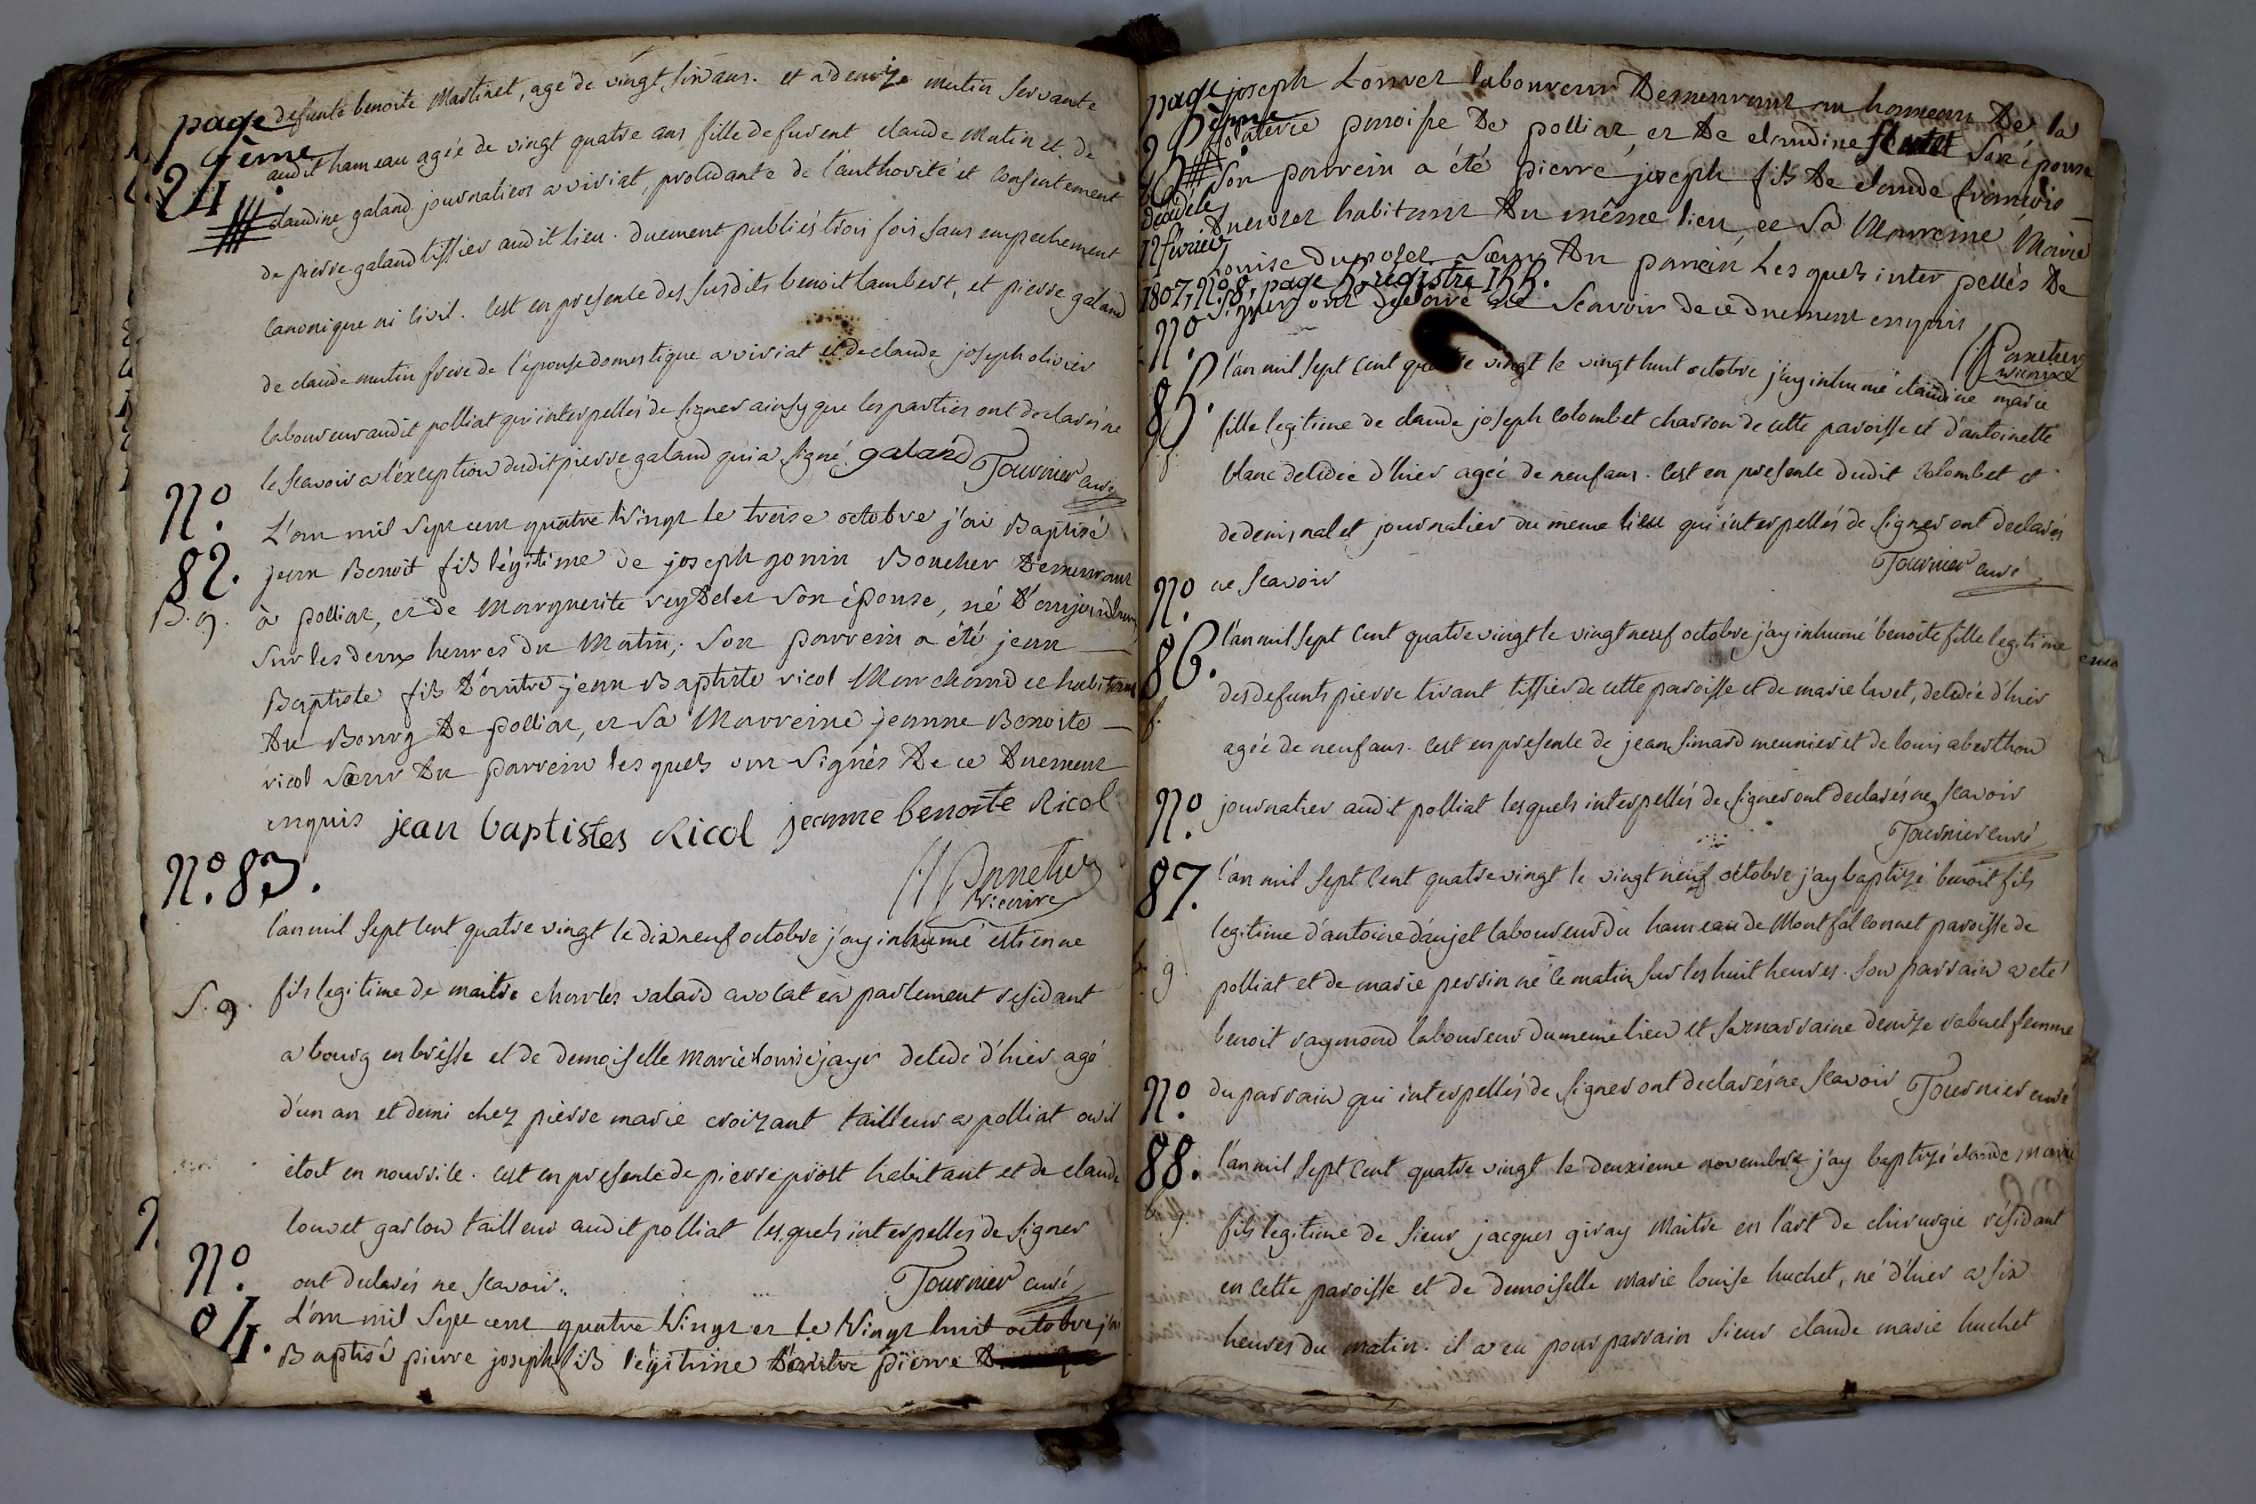 page
24
ème
defunte benoite Martinet, agé de vingt six ans. et a denize mutin servante
audit hameau agée de vingt quatre ans, fille de furent claude Mutin et de
claudine galand journaliers a viriat, procedante de l'authorité et consentement
de pierre galand tissier audit lieu. duement publiés trois fois sans empechement
canonique ni civil. c'est en presence des susdits benoit lambert, et pierre galand
de claude mutin frere de l'epouse domestique a viriat et de claude joseph olivier
laboureur audit polliat qui interpellés de signer ainsy que les parties ont declarés ne
le scavoir a l'exception dudit pierre galand qui a signé. galand Tournier curé
N°.
82.
B. g.
L'an mil sept cent quatre Vingt le treise octobre j'ai Baptisé
jean Benoit fils légitime de joseph gonin Boucher Demeurant
à polliat, et de Marguerite Son épouse, né D'aujourd'hui
Sur les deux heures du Matin; Son parrein a été jean —
Baptiste fils D'autre jean Baptiste ricol Marchand et habitant
Du Bourg De polliat, et Sa Marreine jeanne Benoite —
ricol Sœur Du parrein les quels ont Signés De ce Duement
enquis jean baptistes Ricol jeanne benoite Ricol
Vicaire
N°. 83.
S. g.
l'an mil sept cent quatre vingt le dix neuf octobre j'ay inhumé estienne
fils legitime de maitre charles valard avocat en parlement residant
a bourg en bresse et de demoiselle Marie Louise jayr decedé d'hier agé
d'un an et demi chez pierre marie croizant tailleur a polliat ou il
etoit en nourrice. c'est en presence de pierre prost habitant et de claude
louvet garlon tailleur audit polliat lesquels interpellés de signer
ont declarés ne scavoir. Tournier curé
N°.
84.
L'an mil Sept cent quatre Vingt et le Vingt huit octobre j'ai
Baptisé pierre joseph fils légitime D'autre pierre
page
25
ème
joseph Louvet laboureur Demeurant au hameau De la
paroisse De polliat, et De claudine Son épouse
Son parrein a été pierre joseph fils De claude françois —
habitant Du même lieu, et Sa Marreine Marie
Louise Sœur Du parrein Les quels inter pellés De
Signer ont Déclaré ne Scavoir de ce duement enquis
Vicaire
12 février
1807, N°. 8, page
N°.
85.
l'an mil sept cent quatre vingt le vingt huit octobre j'ay inhumé claudine marie
fille legitime de claude joseph Colombet charron de cette paroisse et d'antoinette
blanc decedée d'hier agée de neuf ans. c'est en presence dudit Colombet et
de denis nalet journalier du meme lieu qui interpellés de signer ont declarés
ne scavoir Tournier curé
N°.
86.
l'an mil sept cent quatre vingt le vingt neuf octobre j'ay inhumé benoite fille legitime
des defunts pierre tirant tissier de cette paroisse et de marie luvet, decedée d'hier
agée de neuf ans. c'est en presence de jean simard meunier et de louis aberthon
journalier audit polliat lesquels interpellés de signer ont declarés ne scavoir
Tournier curé
N°.
87.
g
l'an mil sept cent quatre vingt le vingt neuf octobre j'ay baptizé benoit fils
legitime d'antoine danjet laboureur du hameau de Montfalconnet paroisse de
polliat et de marie perrin né ce matin sur les huit heures. son parrain a eté
benoit raymond laboureur du meme lieu et sa marraine denize rabuel femme
du parrain qui interpellés de signer ont declarés ne scavoir Tournier curé
N°.
88.
b. g.
l'an mil sept cent quatre vingt le deuxieme novembre j'ay baptizé claude marie
fils legitime de sieur jacques giray Maitre en l'art de chirurgie résidant
en cette paroisse et de demoiselle marie louise huchet, né d'hier a six
heures du matin. il a eu pour parrain sieur claude marie huchet